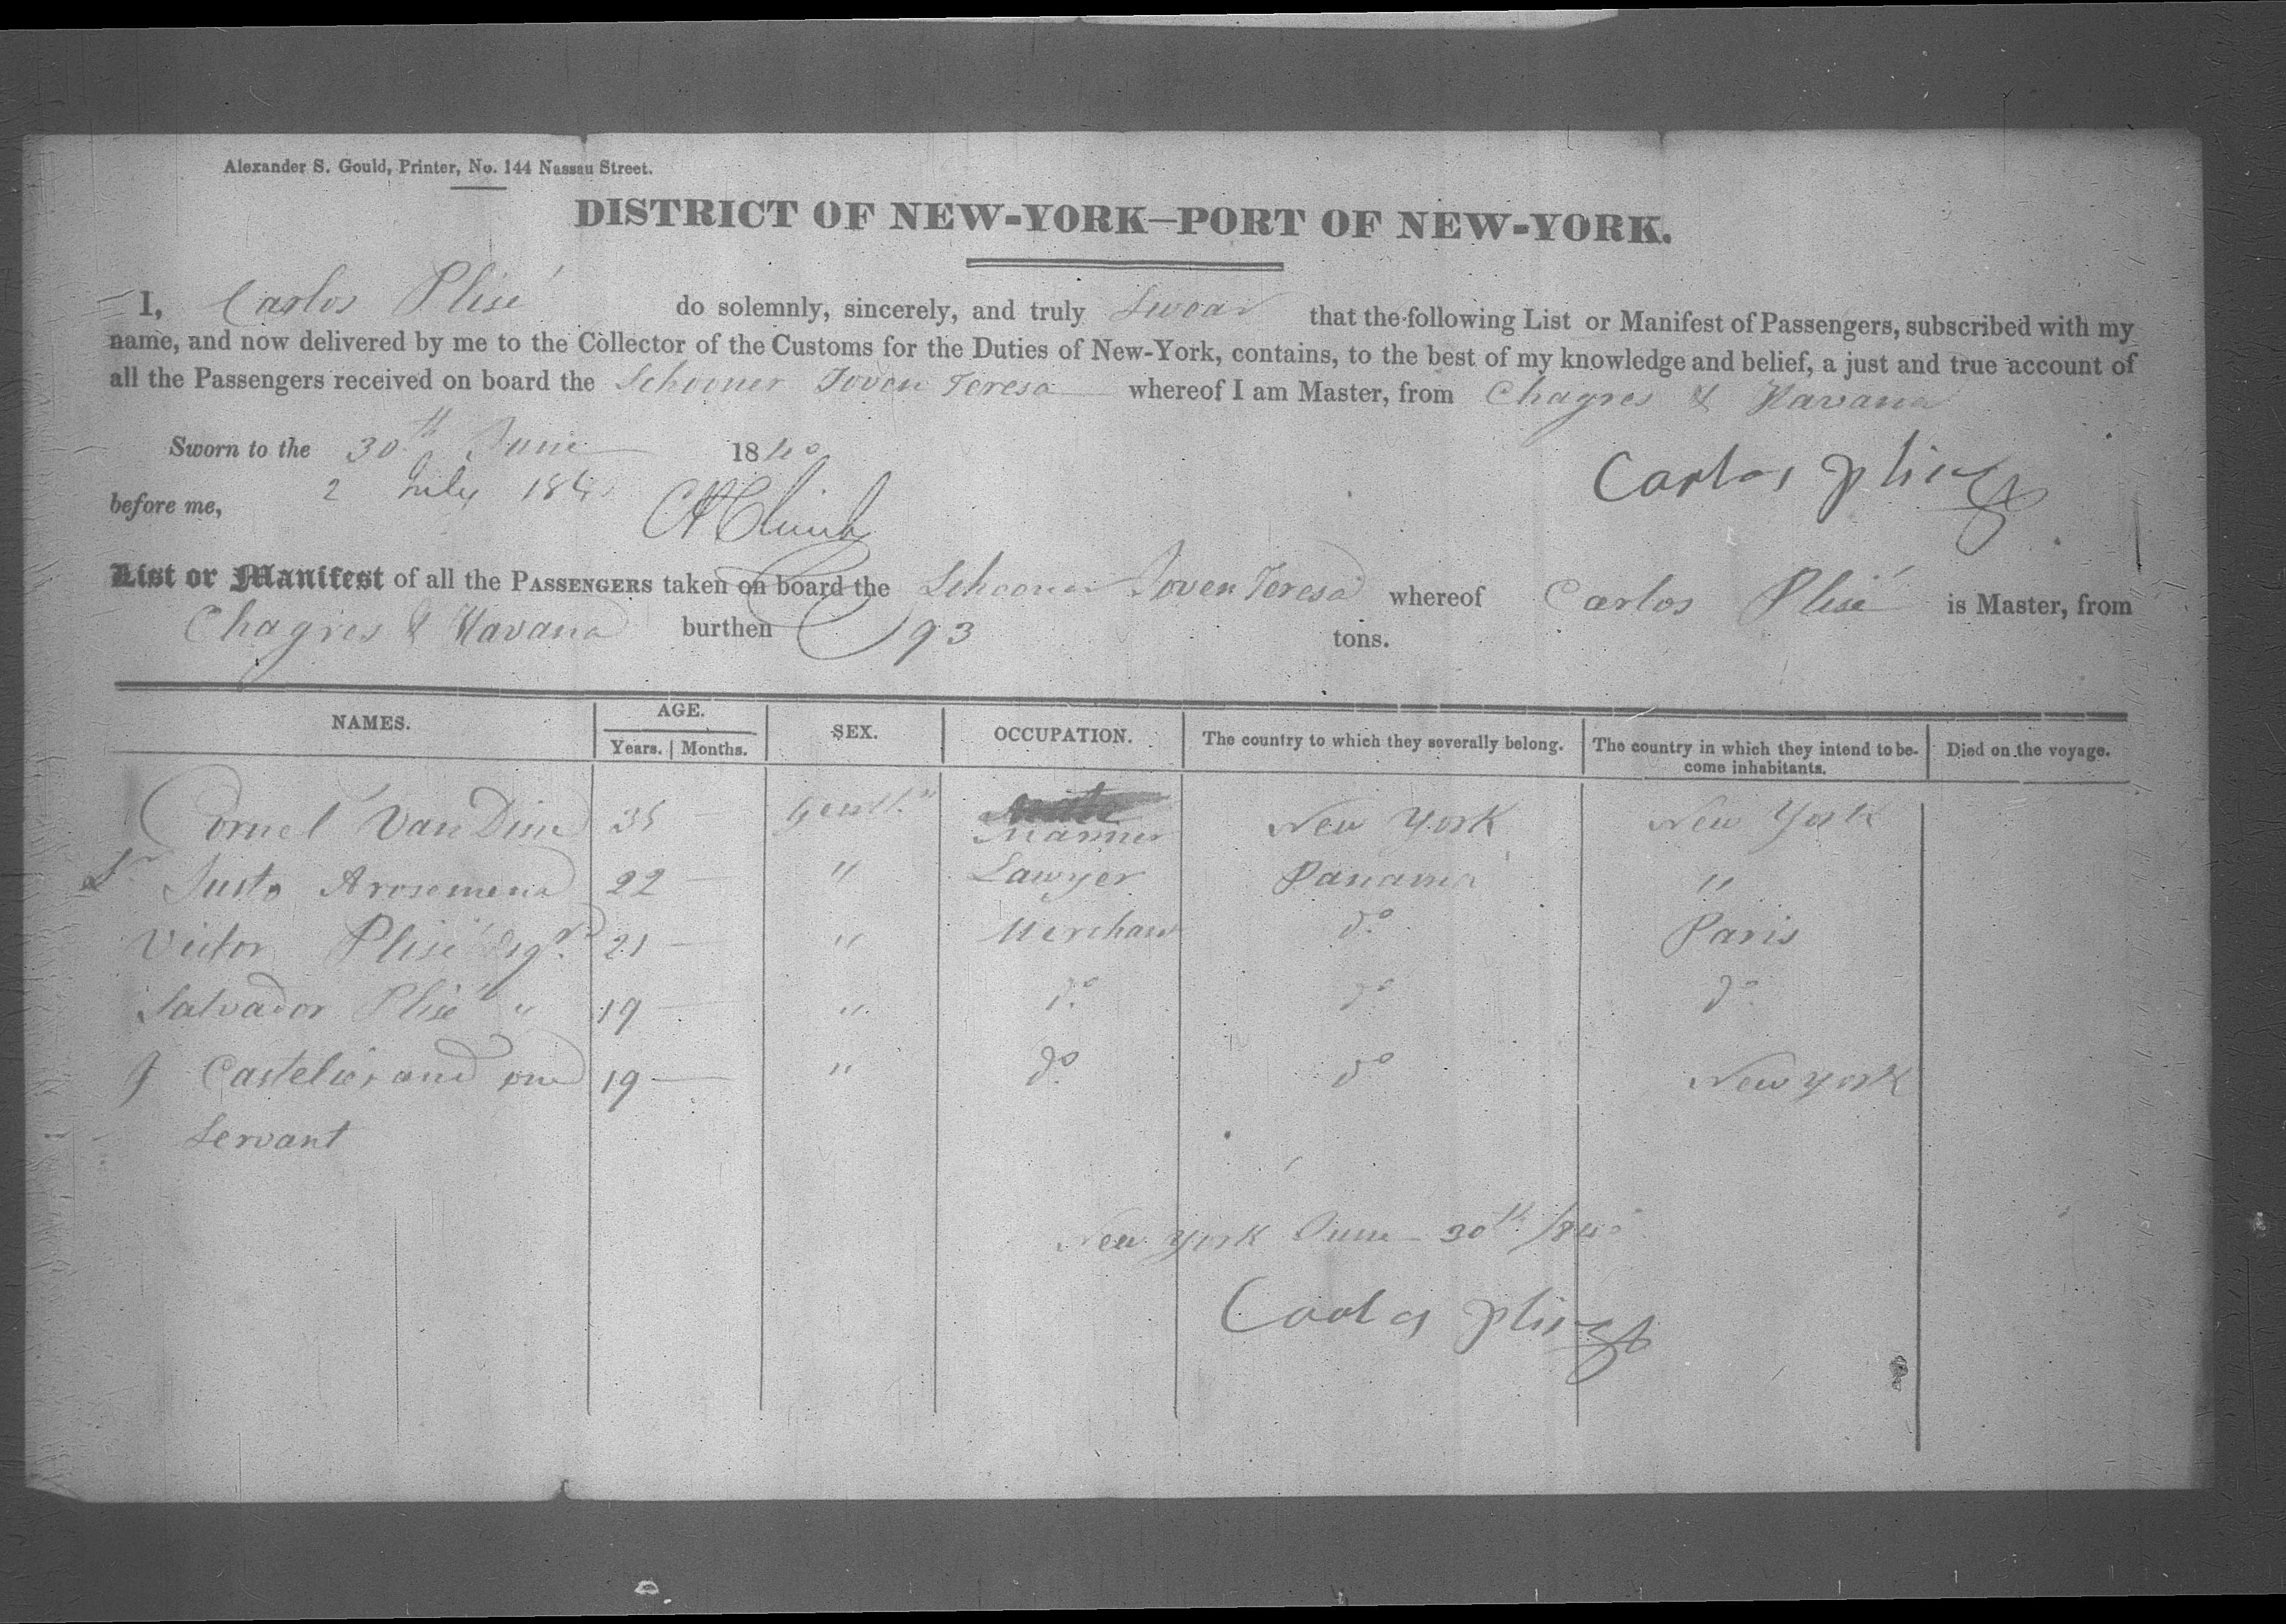 Alexander S. Gould, Printer, No. 144 Nassau Street.
DISTRICT OF NEW-YORK—PORT OF NEW-YORK.
I, Carlos Plisé do solemnly, sincerely, and truly Swear that the following List or Manifest of Passengers, subscribed with my
name, and now delivered by me to the Collector of the Customs for the Duties of New-York, contains, to the best of my knowledge and belief, a just and true account of
all the Passengers received on board the Schooner Joven Teresa whereof I am Master, from Chagres & Havana
Sworn to the 30th June 1840
2 July 184
before me,
Carlos Plisé
List or Manifest of all the PASSENGERS taken on board the Schooner Joven Teresa whereof Carlos Plisé is Master, from
Chagres & Havana burthen 193 tons.
NAMES. AGE. Years. Months. SEX. OCCUPATION. The country to which they severally belong. The country in which they intend to become inhabitants. Died on the voyage.
Cornel Van Dine 35 — Gentln Mariner New York New York
Justo Arosemena 22 — " Lawyer Panama "
Victor Plisé Esqr. 21 — " Merchant do Paris
Salvador Plisé " 19 — " do do do
J Castelio, and one 19 — " do do New York
Servant
New York June 30th 1840
Carlos Plisé